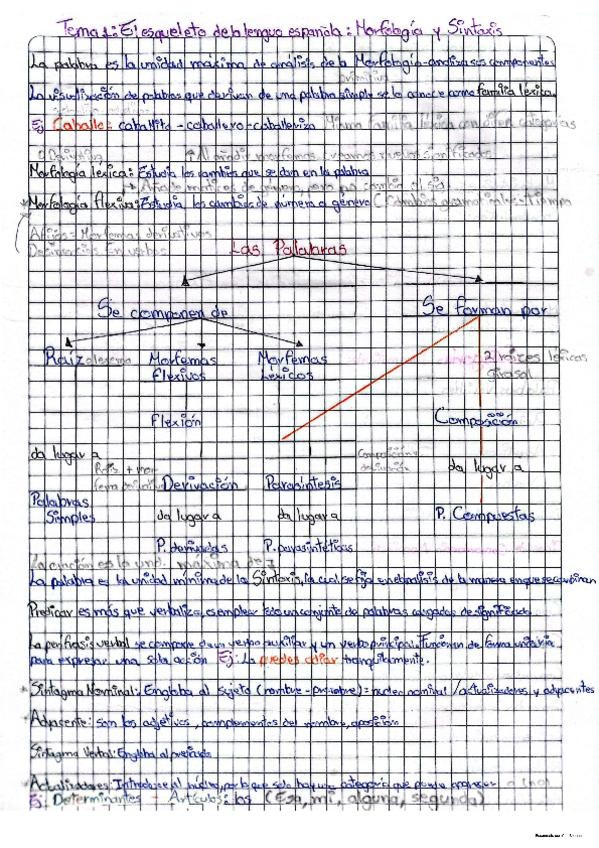 Tema 1: El esqueleto de la lengua española: Morfología y Sintaxis
La palabra es la unidad máxima de análisis de la Morfología-analiza sus componentes
primitiva
La visualización de palabras que derivan de una palabra simple se la conoce como familia léxica
Ej: Caballo: caballito - caballero - caballeriza
Misma familia léxica con diferentes categorías
Al añadir morfemas
Morfología léxica: Estudia los cambios que se dan en la palabra
* Morfología flexiva: Estudia los cambios de numero o género (Cambios gramaticales - tiempo
Afijos = Morfemas derivativos
Desinencias En verbos
Las Palabras
Se componen de
Se forman por
Raíz o lexema
Morfemas Flexivos
Morfemas Léxicos
2 raíces léxicas
Girasol
Flexión
Composición
da lugar a
Raíz + mor
fema
Derivación
Parasíntesis
Composición +
derivación
da lugar a
Palabras Simples
da lugar a
da lugar a
P. Compuestas
P. derivadas
P. parasintéticas
La oración es la und. máxima de
La palabra es la unidad mínima de la Sintaxis, la cual se fija en el analisis de la manera en que se combinan
Predicar es más que verbalizar, es emplear todo un conjunto de palabras cargadas de significado
La perífrasis verbal se compone de un verbo auxiliar y un verbo principal. Funcionan de forma unitaria
para expresar una sola acción Ej: La puedes citar tranquilamente.
* Sintagma Nominal: Engloba al sujeto (nombre - pronombre) = nucleo nominal / actualizadores y adyacentes
* Adyacente: son los adjetivos, complementos del nombre, aposición
Sintagma Verbal: Engloba al predicado
* Actualizadores: Introduce al núcleo, por lo que solo hay una categoría que puede
Ej: Determinantes - Artículos: los (Esa, mi, alguna, segunda)